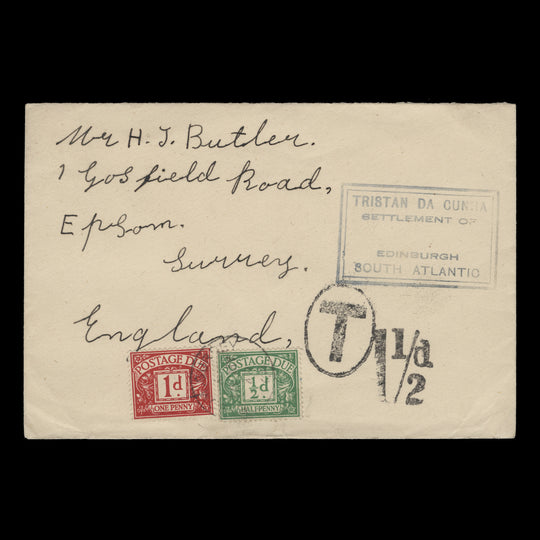 Mr H. J. Butler.
1 Gosfield Road,
Epsom.
Surrey.
England,
TRISTAN DA CUNHA
SETTLEMENT OF
EDINBURGH
SOUTH ATLANTIC
T
1 1/2d
POSTAGE DUE
1d
ONE PENNY
POSTAGE DUE
½d
HALFPENNY